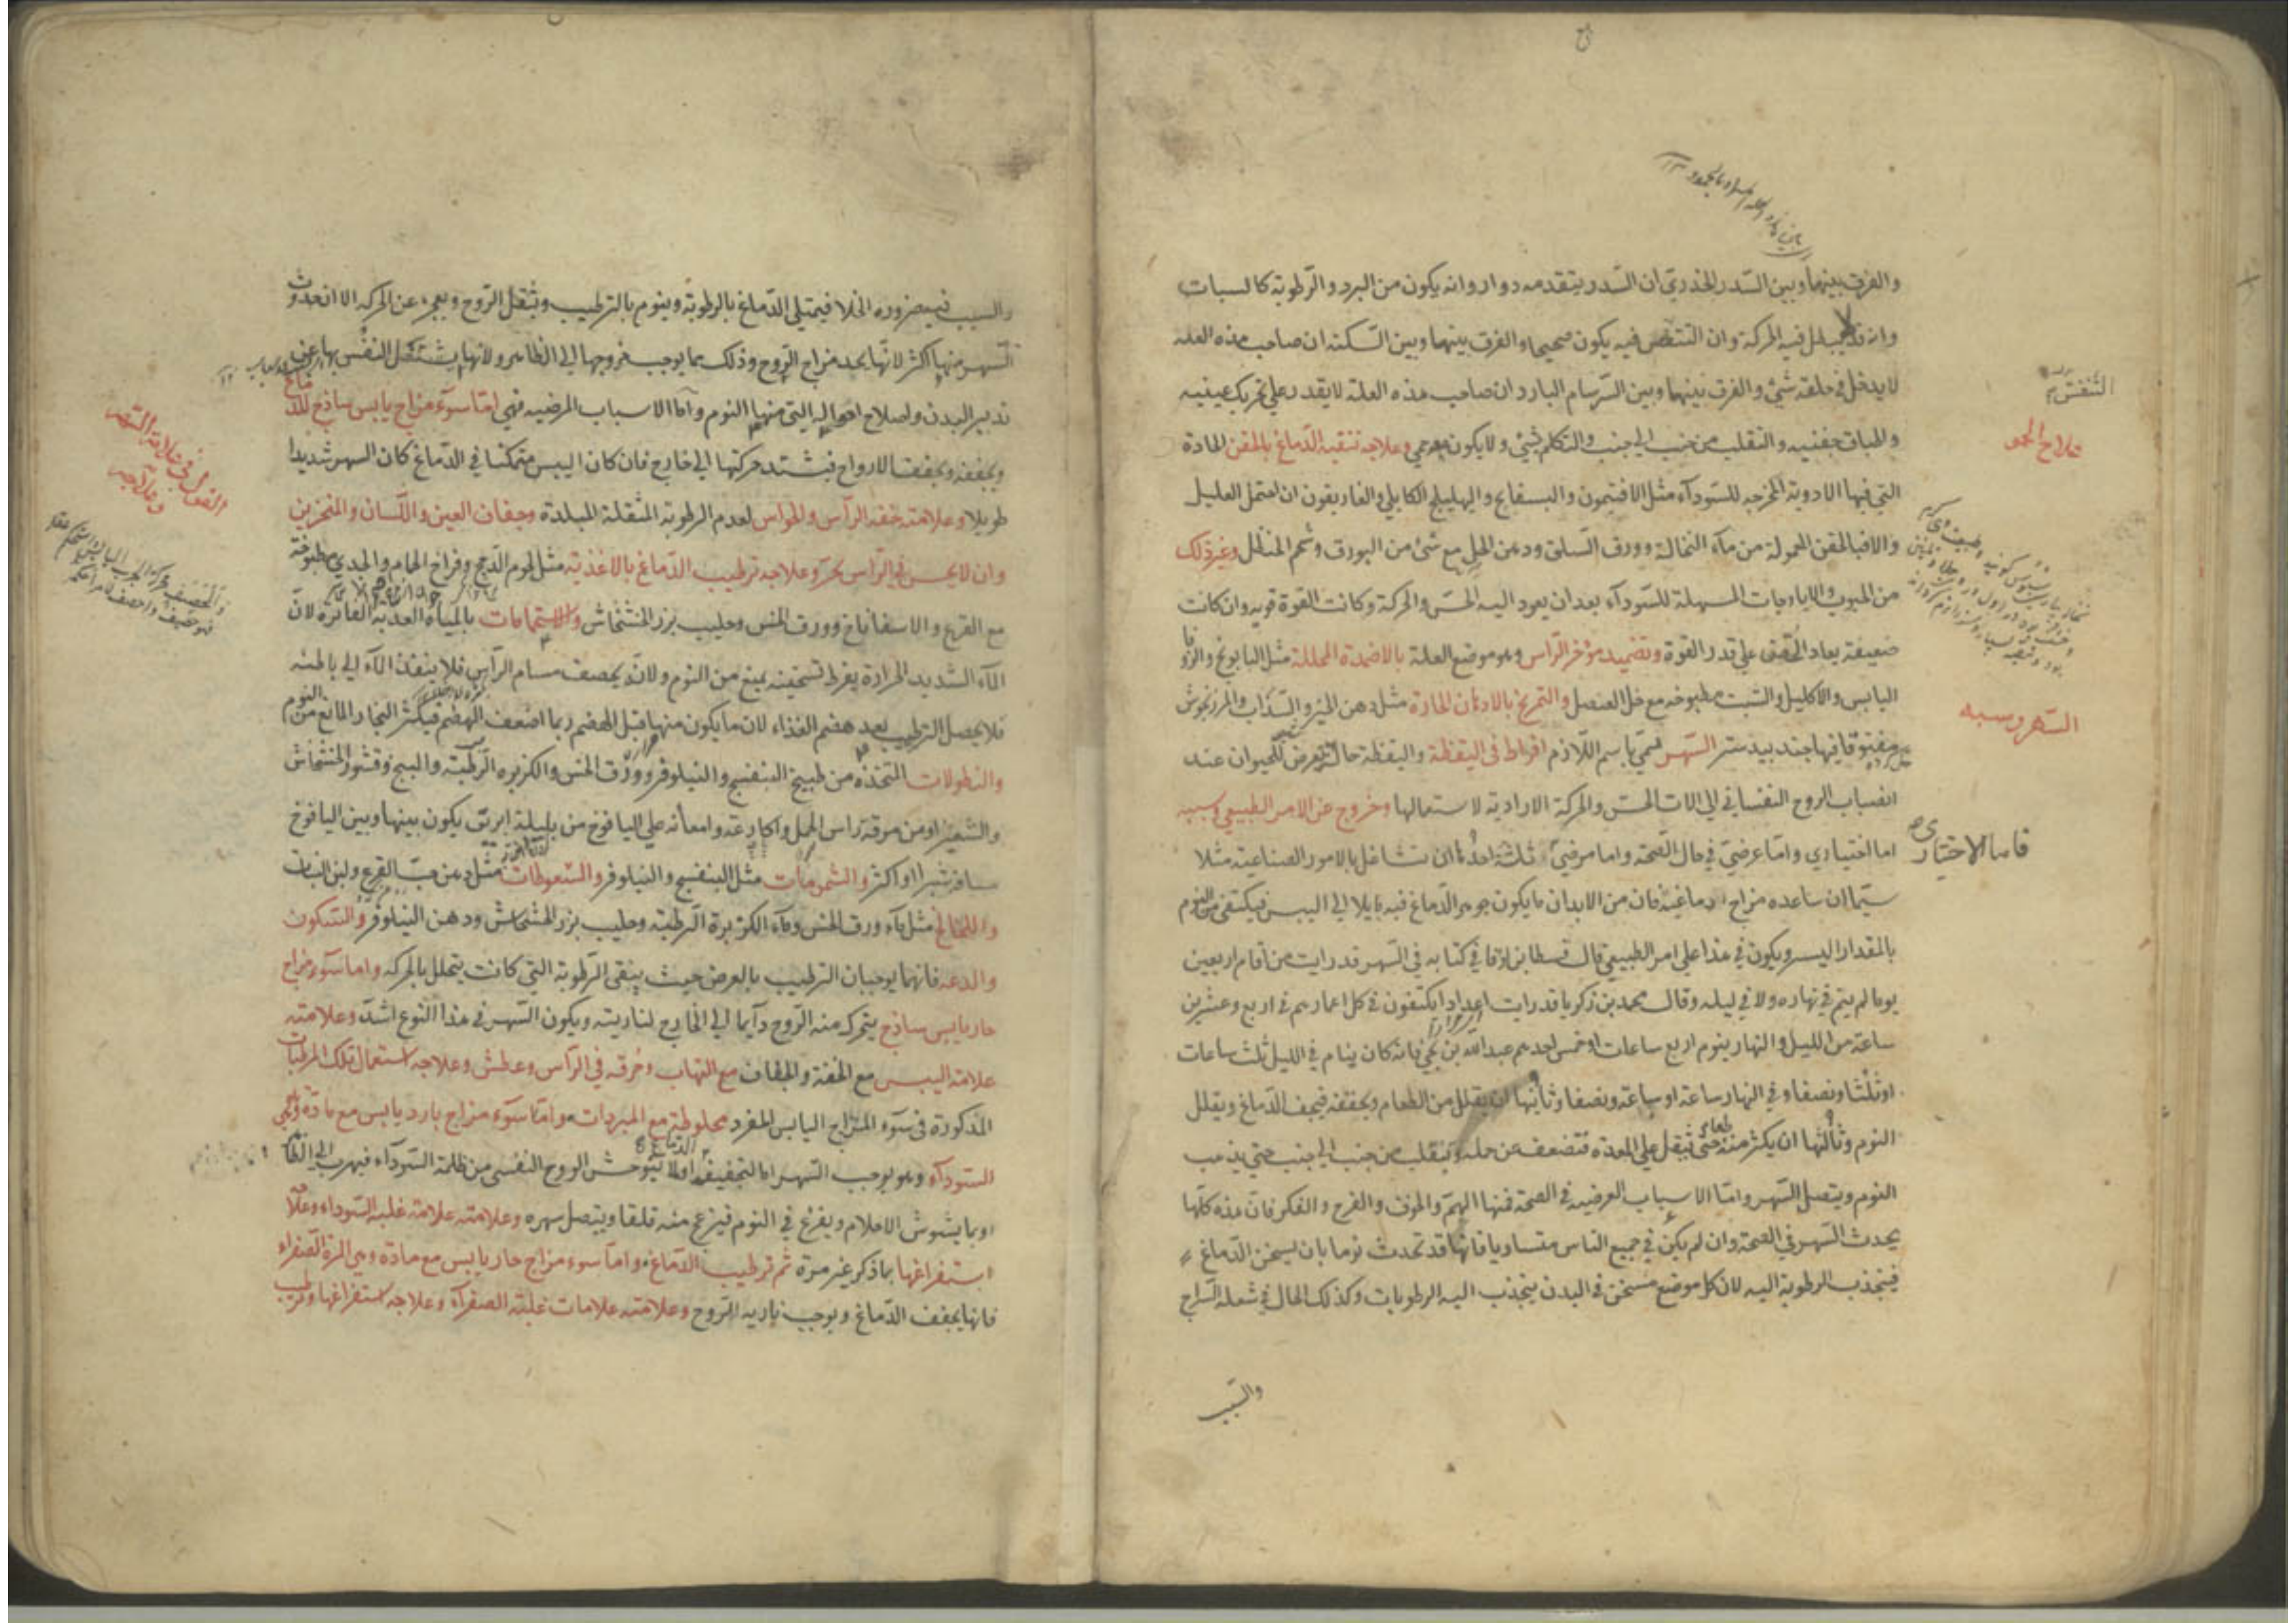 والفرق بينها وبين السّدر الخدري ان السّدر يتقدمه دوار وانه يكون من البرد والرّطوبة كالسبات
وانه قد يبطل فيه الحركة وان التنفس فيه يكون صحيحا والفرق بينها وبين السّكتة ان صاحب هذه العلة
لا يدخل في حلقه شئ والفرق بينها وبين السّرسام البارد ان صاحب هذه العلة لا يقدر على تحريك عينيه
واطباق جفنيه والتقلب من جنب الى جنب والتكلم بشئ ولا يكون معه حمى وعلاجه تنقية الدّماغ بالحقن الحادة
التي فيها الادوية المخرجة للسّودآء مثل الافتيمون والبسفايج والهليلج الكابلي والغاريقون ان احتمل العليل
والا فبالحقن المعمولة من مآء النخالة وورق السّلق ودهن الحل مع شئ من البورق وشحم الحنظل وغير ذلك
من الحبوب والايارجات المسهلة للسّودآء بعد ان يعود اليه الحسّ والحركة وكانت القوة قوية وان كانت
ضعيفة يعاد الحقن على قدر القوة وتضميد مؤخر الرّأس وهو موضع العلة بالاضمدة المحللة مثل البابونج والزوفا
اليابس والاكليل والشبت مطبوخه مع خل العنصل والتمريخ بالادهان الحادة مثل دهن الخيرى والسّذاب والمرزنجوش
مفتوقا فيها جندبيدستر السّهر سمّي باسم اللّازم افراط في اليقظة واليقظة حالة تعرض للحيوان عند
انصباب الروح النفساني الى الات الحسّ والحركة الارادية لاستعمالها وخروج عن الامر الطبيعي وسببه
اما اختياري وامّا عرضيّ في حال الصّحة واما مرضيّ ثلثة احدها ان تشاغل بالامور الصناعية مثلا
سيّما ان ساعده مزاج دماغيّة فان من الابدان ما يكون جوهر الدّماغ فيه مايلا الى اليبس فيكتفي من النوم
بالمقدار اليسير ويكون في هذا على امر الطبيعي قال قسطا بن لوقا في كتابه في السّهر قد رايت من اقام اربعين
يوما لم ينم في نهاره ولا في ليله وقال محمد بن زكريا قد رايت اعدادا يكتفون في كل اعمارهم في اربع وعشرين
ساعة من الليل والنهار بنوم اربع ساعات او خمس احدهم عبد اللّه بن يحيى فانه كان ينام في الليل ثلث ساعات
او ثلثا ونصفا وفي النهار ساعة او ساعة ونصفا وثانيها ان يقلل من الطعام ويجففه فيجف الدّماغ ويقلل
النوم وثالثها ان يكثر منه حتى يثقل على المعدة فتضعف عن حمله وتتقلب من جنب الى جنب حتى يذهب
النوم ويتصل السّهر وامّا الاسباب العرضيه في الصحة فمنها الهمّ والخوف والفرح والفكر فان هذه كلّها
يحدث السّهر في الصحة وان لم يكن في جميع الناس متساويا فانّها قد تحدث نوما بان يسخن الدّماغ
فينجذب الرطوبة اليه لان كل موضع مسخن في البدن ينجذب اليه الرطوبات وكذلك الحال في شعلة السّراج
والسّبب
التنفس
علاج الجمود
السّهر وسببه
فاما الاختياري
والسبب فيه ضرورة الخلا فيمتلي الدّماغ بالرطوبة وينوم بالترطيب وثقل الرّوح وبعجزه عن الحركة الا ان حدوث
السّهر منها اكثر لانّها يحد مزاج الرّوح وذلك مما يوجب خروجها الى الظاهر ولانها يشتغل النفس بها عن
تدبير البدن واصلاح احواله التي منها النوم وامّا الاسباب المرضيه فهي امّا سوء مزاج يابس ساذج للدماغ
ويجففه ويجفف الارواح فيشتد حركتها الى خارج فان كان اليبس متمكنا في الدّماغ كان السهر شديدا
طويلا وعلامته خفة الرّأس والحواس لعدم الرطوبة المثقلة المبلدة وجفاف العين واللّسان والمنخرين
وان لا يحسّ في الرّاس بحرّ وعلاجه ترطيب الدّماغ بالاغذية مثل لحوم الدّجج وفراخ الحمام والجدي مطبوخة
مع القرع والاسفاناخ وورق الخس وحليب بزر الخشخاش والاستحمامات بالمياه العذبة الفاترة لانّ
المآء الشديد الحرارة يفرط تسخينه يمنع من النوم ولانّه يخصف مسام الرّأس فلا ينفذ المآء الى باطنه
فلا يحصل الترطيب بعد هضم الغذاء لان ما يكون منها قبل الهضم ربما اضعف الهضم فيكثر البخار المانع من النوم
والنطولات المتخذه من طبيخ البنفسج والنيلوفر وورق الخس والكزبره الرّطبة والبنج وقشور الخشخاش
والشعير او من مرقة رأس الحمل واكارعه وامعائه على اليافوخ من بلبلة ابريق يكون بينها وبين اليافوخ
مسافة شبرا او اكثر والشمومات مثل البنفسج والنيلوفر والسّعوطات مثل دهن حبّ القرع ولبن البنات
واللخالخ مثل مآء ورق الخس ومآء الكزبرة الرّطبة وحليب بزر الخشخاش ودهن النيلوفر والسّكون
والدعة فانهما يوجبان الترطيب بالعرض حيث يبقى الرّطوبة التي كانت يتحلل بالحركة واما سوء مزاج
حار يابس ساذج يتحرك منه الرّوح دآيما الى الخارج لناريته ويكون السّهر في هذا النوع اشدّ وعلامته
علامة اليبس مع الخفة والجفاف مع التهاب وحرقة في الرّأس وعطش وعلاجه استعمال تلك المرطبات
المذكورة في سوء المزاج اليابس المفرد مخلوطة مع المبردات وامّا سوء مزاج بارد يابس مع مادّة وهي
السّودآء وهو يوجب السّهر اما لتجفيفه او لما يتوحّش الروح النفسي من ظلمة السّودآء فيهرب الى الظاهر
او بما يشوش الاحلام ويفزع في النوم فينزعج منه قلقا ويتصل سهره وعلامته علامة غلبة السّوداء وعلاجه
استفراغها بما ذكر غير مرة ثم ترطيب الدّماغ وامّا سوء مزاج حار يابس مع مادّة وهي المرة الصّفراء
فانها يجفف الدّماغ ويوجب نارية الرّوح وعلامته علامات غلبة الصفرآء وعلاجه استفراغها وترطيب
القول في علامة السّهر
وعلاجه